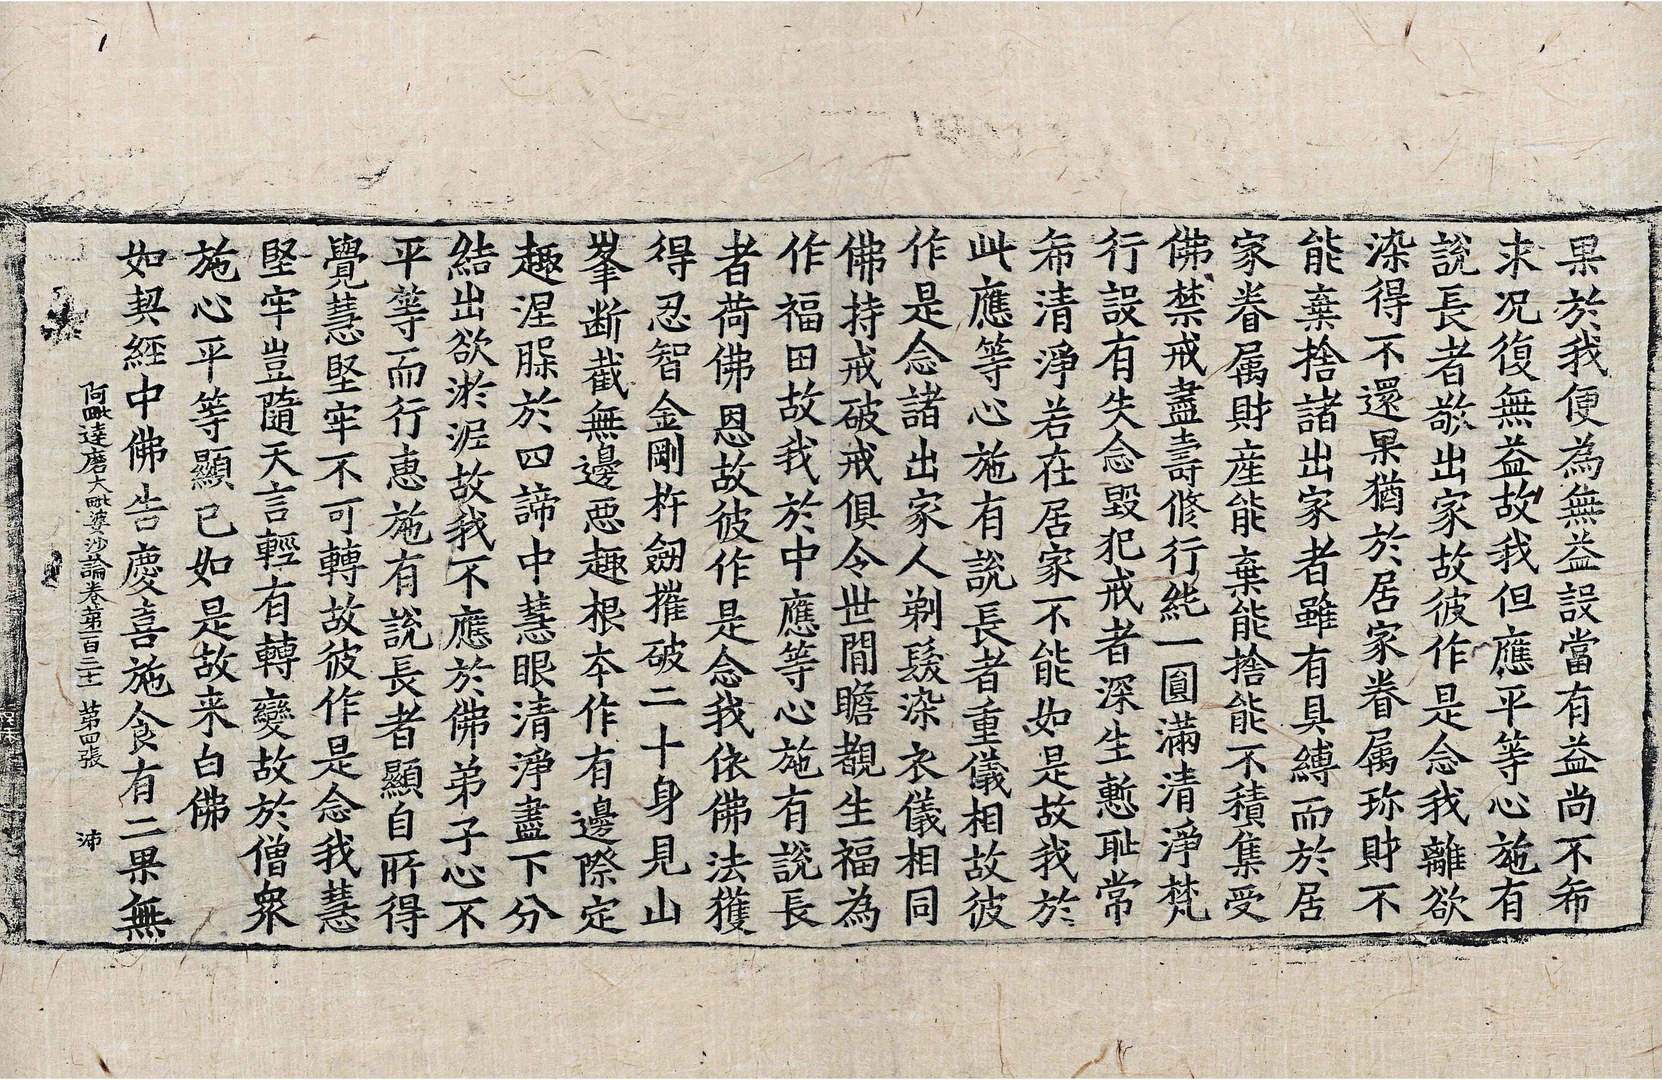 果於我便為無益設當有益尚不希
求况復無益故我但應平等心施有
說長者敬出家故彼作是念我離欲
染得不還果猶於居家眷属珎財不
能棄捨諸出家者雖有具縛而於居
家眷属財産能棄能捨能不積集受
佛禁戒盡壽修行純一圓滿清淨梵
行設有失念毀犯戒者深生慙耻常
希清淨若在居家不能如是故我於
此應等心施有說長者重儀相故彼
作是念諸出家人剃髮染衣儀相同
佛持戒破戒俱令世間瞻覩生福為
作福田故我於中應等心施有說長
者荷佛恩故彼作是念我依佛法獲
得忍智金剛杵劒摧破二十身見山
峯断截無邊惡趣根本作有邊際定
趣涅𣵀於四諦中慧眼清淨盡下分
結出欲淤泥故我不應於佛弟子心不
平等而行恵施有說長者顯自所得
覺慧堅牢不可轉故彼作是念我慧
堅牢豈隨天言輕有轉變故於僧衆
施心平等顯已如是故来白佛
如契經中佛告慶喜施食有二果無
阿毗達磨大毗婆沙論卷第一百三十一 第四張 沛